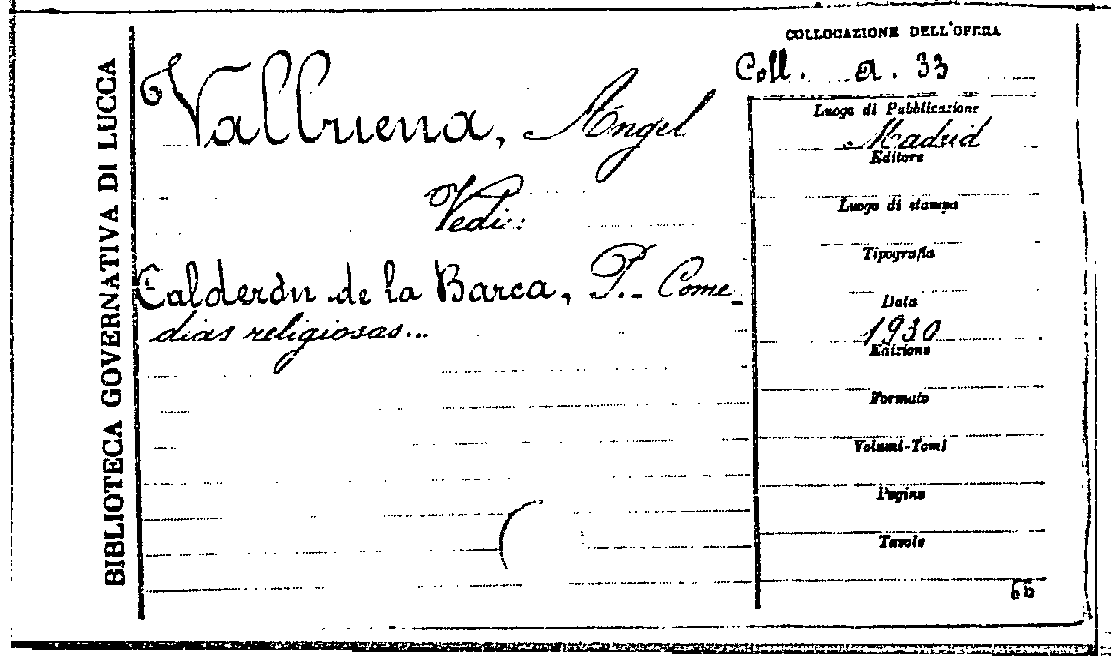 BIBLIOTECA GOVERNATIVA DI LUCCA
Valbuena, Ángel
Vedi:
Calderón de la Barca, P. - Come-
dias religiosas...
COLLOCAZIONE DELL'OPERA
Coll. a. 33
Luogo di Pubblicazione
Madrid
Editore
Luogo di stampa
Tipografia
Data
1930
Edizione
Formato
Volumi-Tomi
Pagine
Tavole